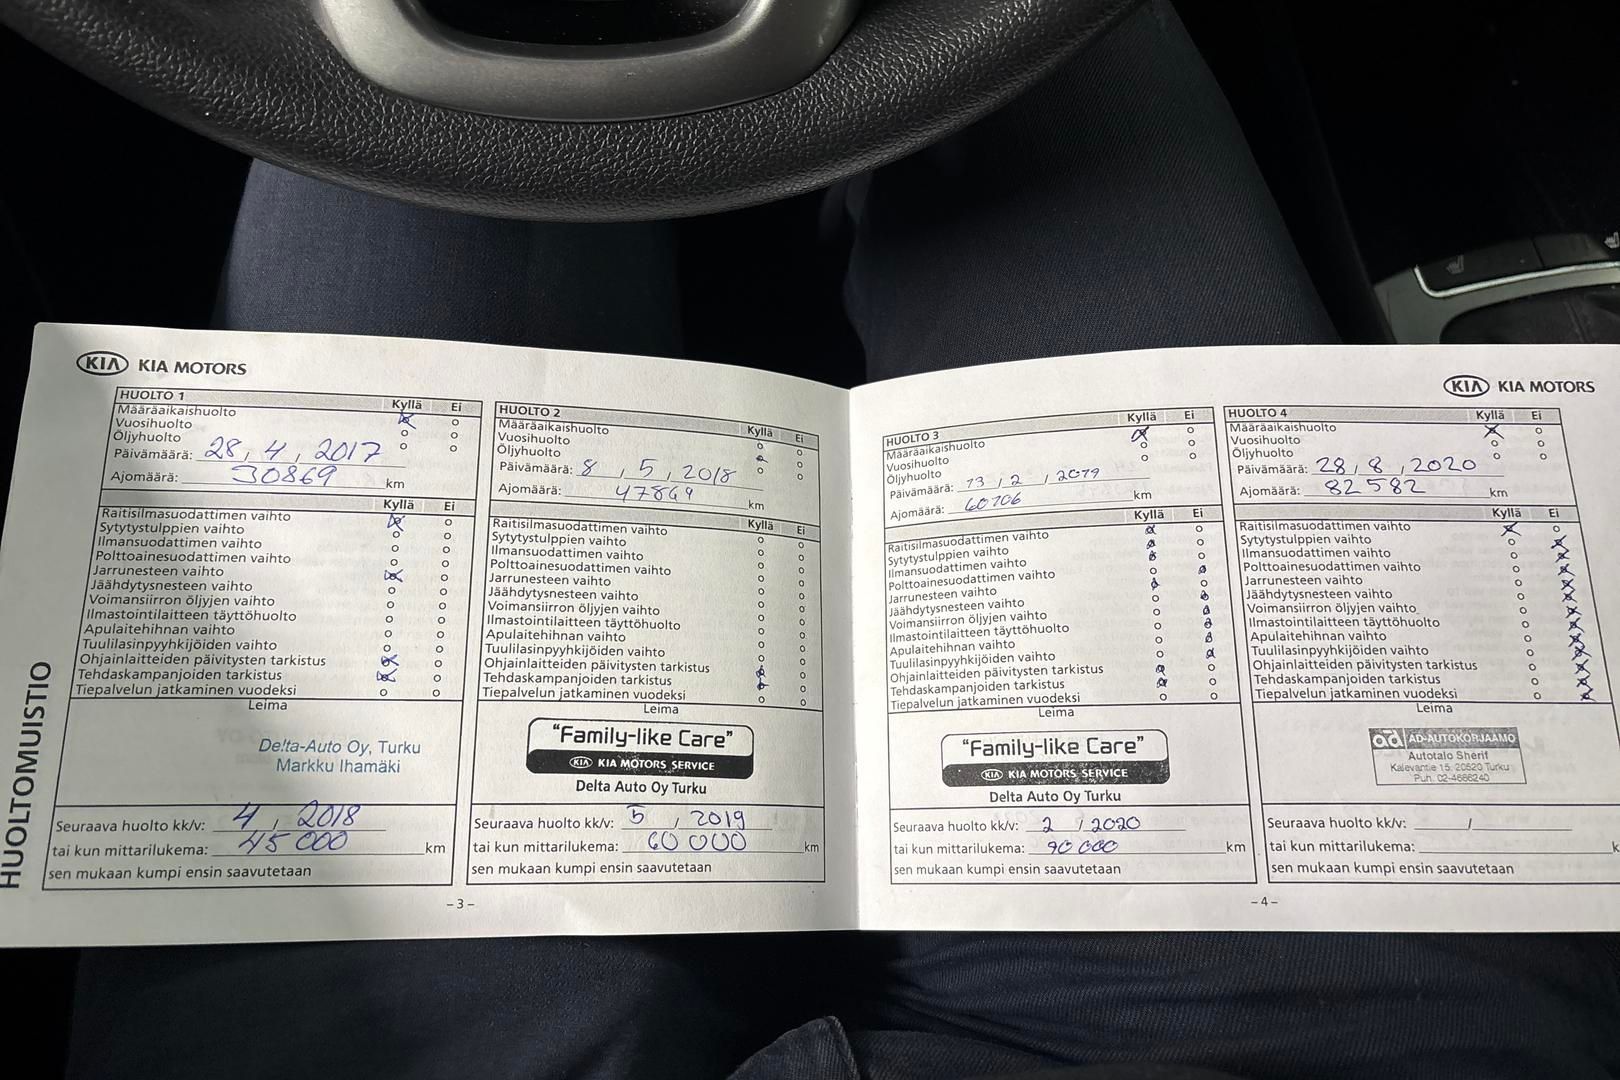 HUOLTOMUISTIO
KIA KIA MOTORS
HUOLTO 1 Kyllä Ei
Määräaikaishuolto
Vuosihuolto
Öljyhuolto
Päivämäärä: 28, 4, 2017
Ajomäärä: 30869 km
Kyllä Ei
Raitisilmasuodattimen vaihto
Sytytystulppien vaihto
Ilmansuodattimen vaihto
Polttoainesuodattimen vaihto
Jarrunesteen vaihto
Jäähdytysnesteen vaihto
Voimansiirron öljyjen vaihto
Ilmastointilaitteen täyttöhuolto
Apulaitehihnan vaihto
Tuulilasinpyyhkijöiden vaihto
Ohjainlaitteiden päivitysten tarkistus
Tehdaskampanjoiden tarkistus
Tiepalvelun jatkaminen vuodeksi
Leima
Delta-Auto Oy, Turku
Markku Ihamäki
Seuraava huolto kk/v: 4, 2018
tai kun mittarilukema: 45 000 km
sen mukaan kumpi ensin saavutetaan
HUOLTO 2 Kyllä Ei
Määräaikaishuolto
Vuosihuolto
Öljyhuolto
Päivämäärä: 8, 5, 2018
Ajomäärä: 47869 km
Kyllä Ei
Raitisilmasuodattimen vaihto
Sytytystulppien vaihto
Ilmansuodattimen vaihto
Polttoainesuodattimen vaihto
Jarrunesteen vaihto
Jäähdytysnesteen vaihto
Voimansiirron öljyjen vaihto
Ilmastointilaitteen täyttöhuolto
Apulaitehihnan vaihto
Tuulilasinpyyhkijöiden vaihto
Ohjainlaitteiden päivitysten tarkistus
Tehdaskampanjoiden tarkistus
Tiepalvelun jatkaminen vuodeksi
Leima
"Family-like Care"
KIA KIA MOTORS SERVICE
Delta Auto Oy Turku
Seuraava huolto kk/v: 5, 2019
tai kun mittarilukema: 60 000 km
sen mukaan kumpi ensin saavutetaan
- 3 -
KIA KIA MOTORS
HUOLTO 3 Kyllä Ei
Määräaikaishuolto
Vuosihuolto
Öljyhuolto
Päivämäärä: 13, 2, 2019
Ajomäärä: 60706 km
Kyllä Ei
Raitisilmasuodattimen vaihto
Sytytystulppien vaihto
Ilmansuodattimen vaihto
Polttoainesuodattimen vaihto
Jarrunesteen vaihto
Jäähdytysnesteen vaihto
Voimansiirron öljyjen vaihto
Ilmastointilaitteen täyttöhuolto
Apulaitehihnan vaihto
Tuulilasinpyyhkijöiden vaihto
Ohjainlaitteiden päivitysten tarkistus
Tehdaskampanjoiden tarkistus
Tiepalvelun jatkaminen vuodeksi
Leima
"Family-like Care"
KIA KIA MOTORS SERVICE
Delta Auto Oy Turku
Seuraava huolto kk/v: 2 / 2020
tai kun mittarilukema: 90 000 km
sen mukaan kumpi ensin saavutetaan
HUOLTO 4 Kyllä Ei
Määräaikaishuolto
Vuosihuolto
Öljyhuolto
Päivämäärä: 28, 8, 2020
Ajomäärä: 82 582 km
Kyllä Ei
Raitisilmasuodattimen vaihto
Sytytystulppien vaihto
Ilmansuodattimen vaihto
Polttoainesuodattimen vaihto
Jarrunesteen vaihto
Jäähdytysnesteen vaihto
Voimansiirron öljyjen vaihto
Ilmastointilaitteen täyttöhuolto
Apulaitehihnan vaihto
Tuulilasinpyyhkijöiden vaihto
Ohjainlaitteiden päivitysten tarkistus
Tehdaskampanjoiden tarkistus
Tiepalvelun jatkaminen vuodeksi
Leima
ad AD-AUTOKORJAAMO
Autotalo Sherif
Kalevantie 15, 20520 Turku
Puh. 02-4666240
Seuraava huolto kk/v: /
tai kun mittarilukema: k
sen mukaan kumpi ensin saavutetaan
- 4 -